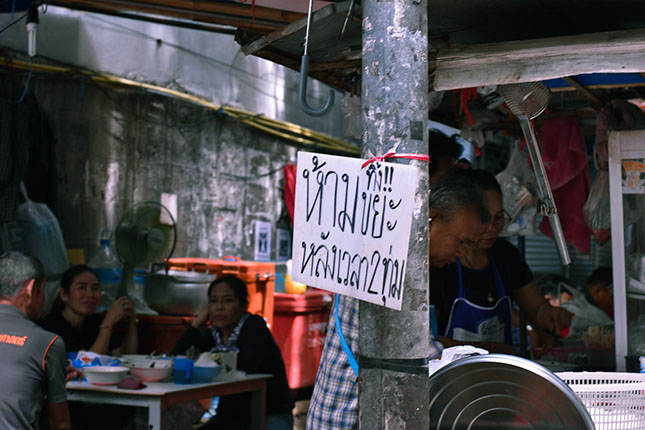 ห้ามทิ้ง!!
ขยะ
หลังเวลา2ทุ่ม